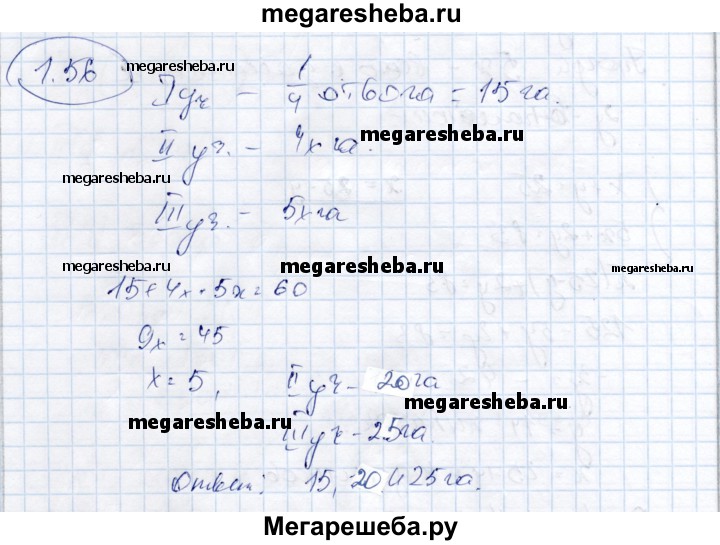 megaresheba.ru
1.56 megaresheba.ru
I уч – 1/4 от 60 га = 15 га.
II уч. – 4x га.
megaresheba.ru
megaresheba.ru
III уч. – 5x га
megaresheba.ru megaresheba.ru
15 + 4x + 5x = 60
9x = 45
x = 5, II уч – 20 га
megaresheba.ru
megaresheba.ru
III уч – 25 га.
Ответ: 15, 20 и 25 га.
Мегарешеба.ру